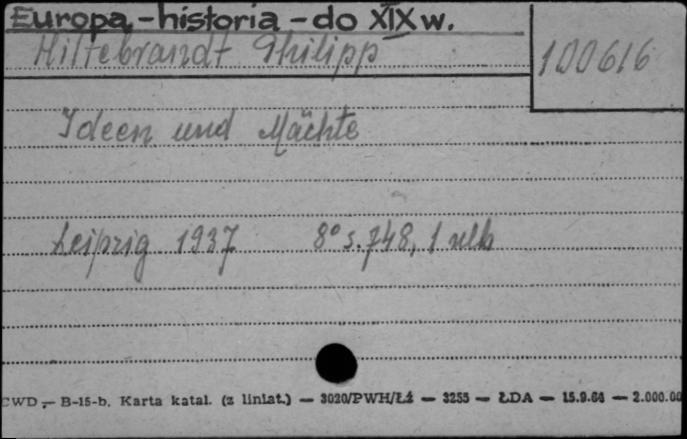 Europa - historia - do XIX w.
Hiltebrandt Philipp
100616
Ideen und Mächte
Leipzig 1937 8° s. 748, 1
CWD - B-15-b. Karta katal. (z liniat.) — 3020/PWH/Łź — 3255 — ŁDA — 15.9.64 — 2.000.00